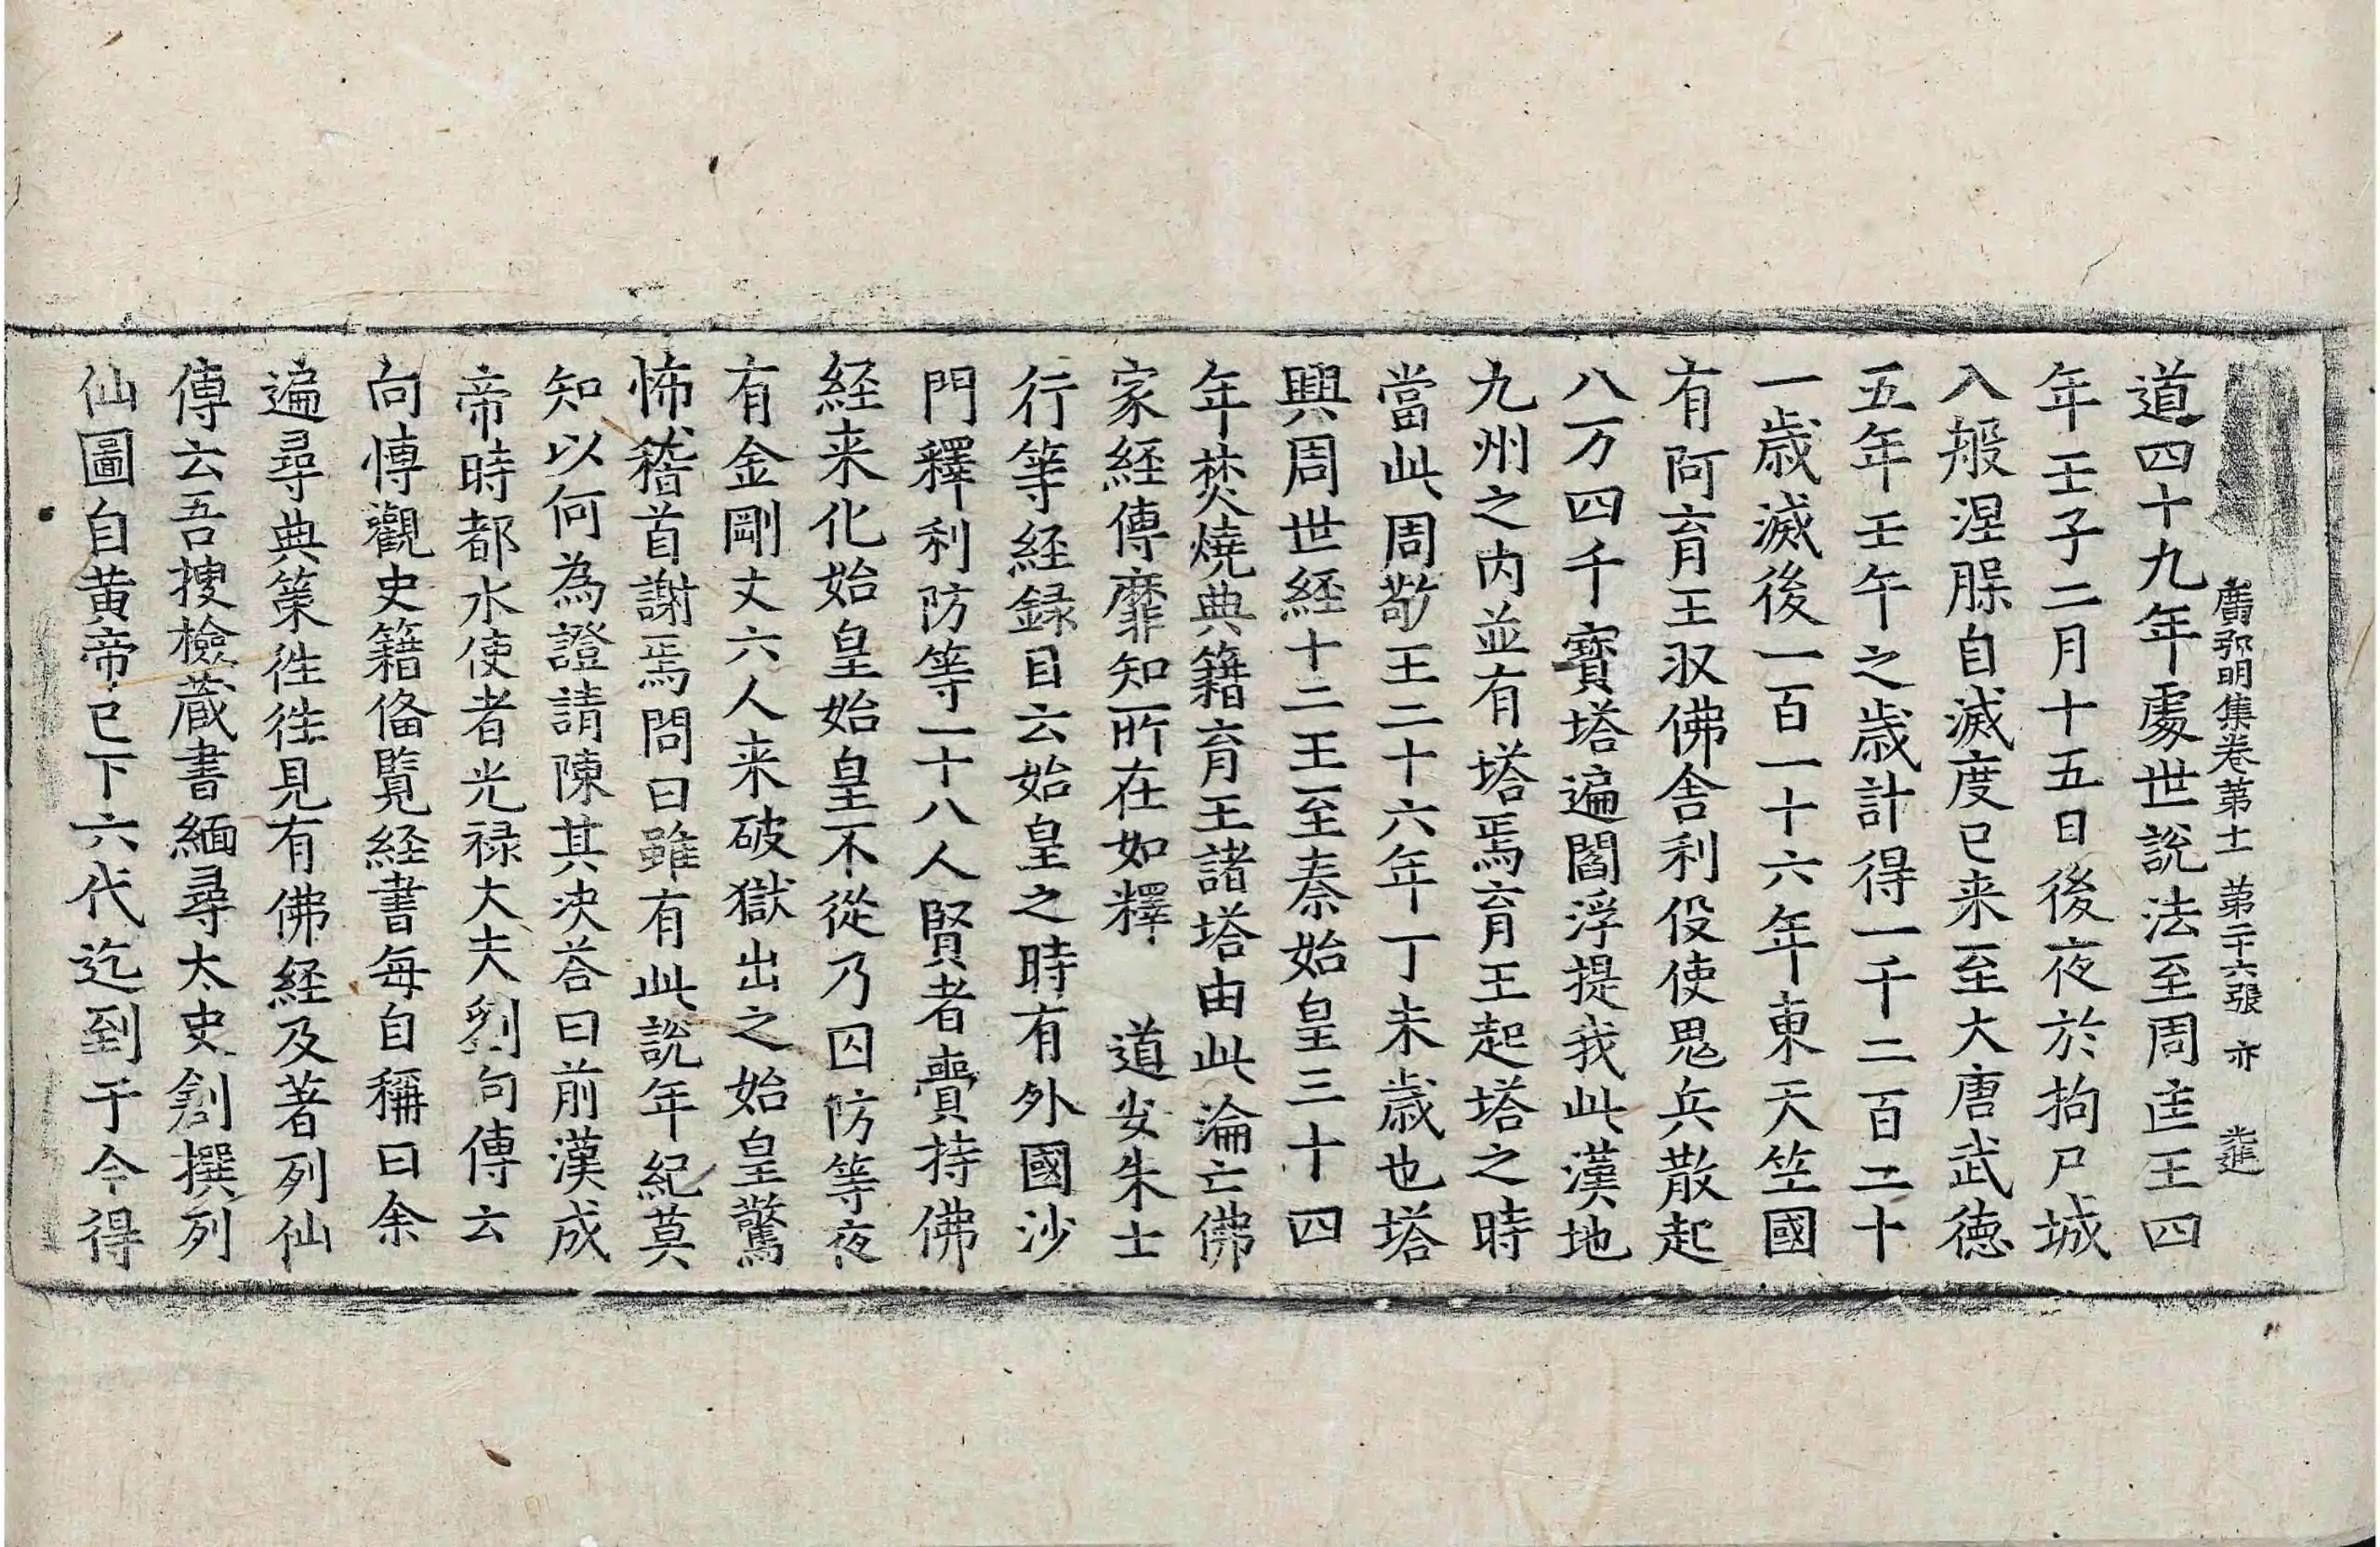 廣弘明集卷第十一 第二十六張 亦 進
道四十九年處世說法至周匡王四
年壬子二月十五日後夜於拘尸城
入般涅脲自滅度已来至大唐武德
五年壬午之歲計得一千二百二十
一歲滅後一百一十六年東天竺國
有阿育王收佛舍利役使鬼兵散起
八万四千寶塔遍閻浮提我此漢地
九州之內並有塔焉育王起塔之時
當此周敬王二十六年丁未歲也塔
興周世経十二王至秦始皇三十四
年焚燒典籍育王諸塔由此淪亡佛
家経傳靡知所在如釋 道安朱士
行等経録目云始皇之時有外國沙
門釋利防等一十八人賢者賷持佛
経来化始皇始皇不從乃囚防等夜
有金剛丈六人来破獄出之始皇驚
怖稽首謝焉問曰雖有此說年紀莫
知以何為證請陳其決荅曰前漢成
帝時都水使者光禄大夫劉向傳云
向博觀史籍俻覧経書每自稱曰余
遍尋典策徃徃見有佛経及著列仙
傳云吾搜檢蔵書緬尋太史創撰列
仙圖自黄帝已下六代迄到于今得